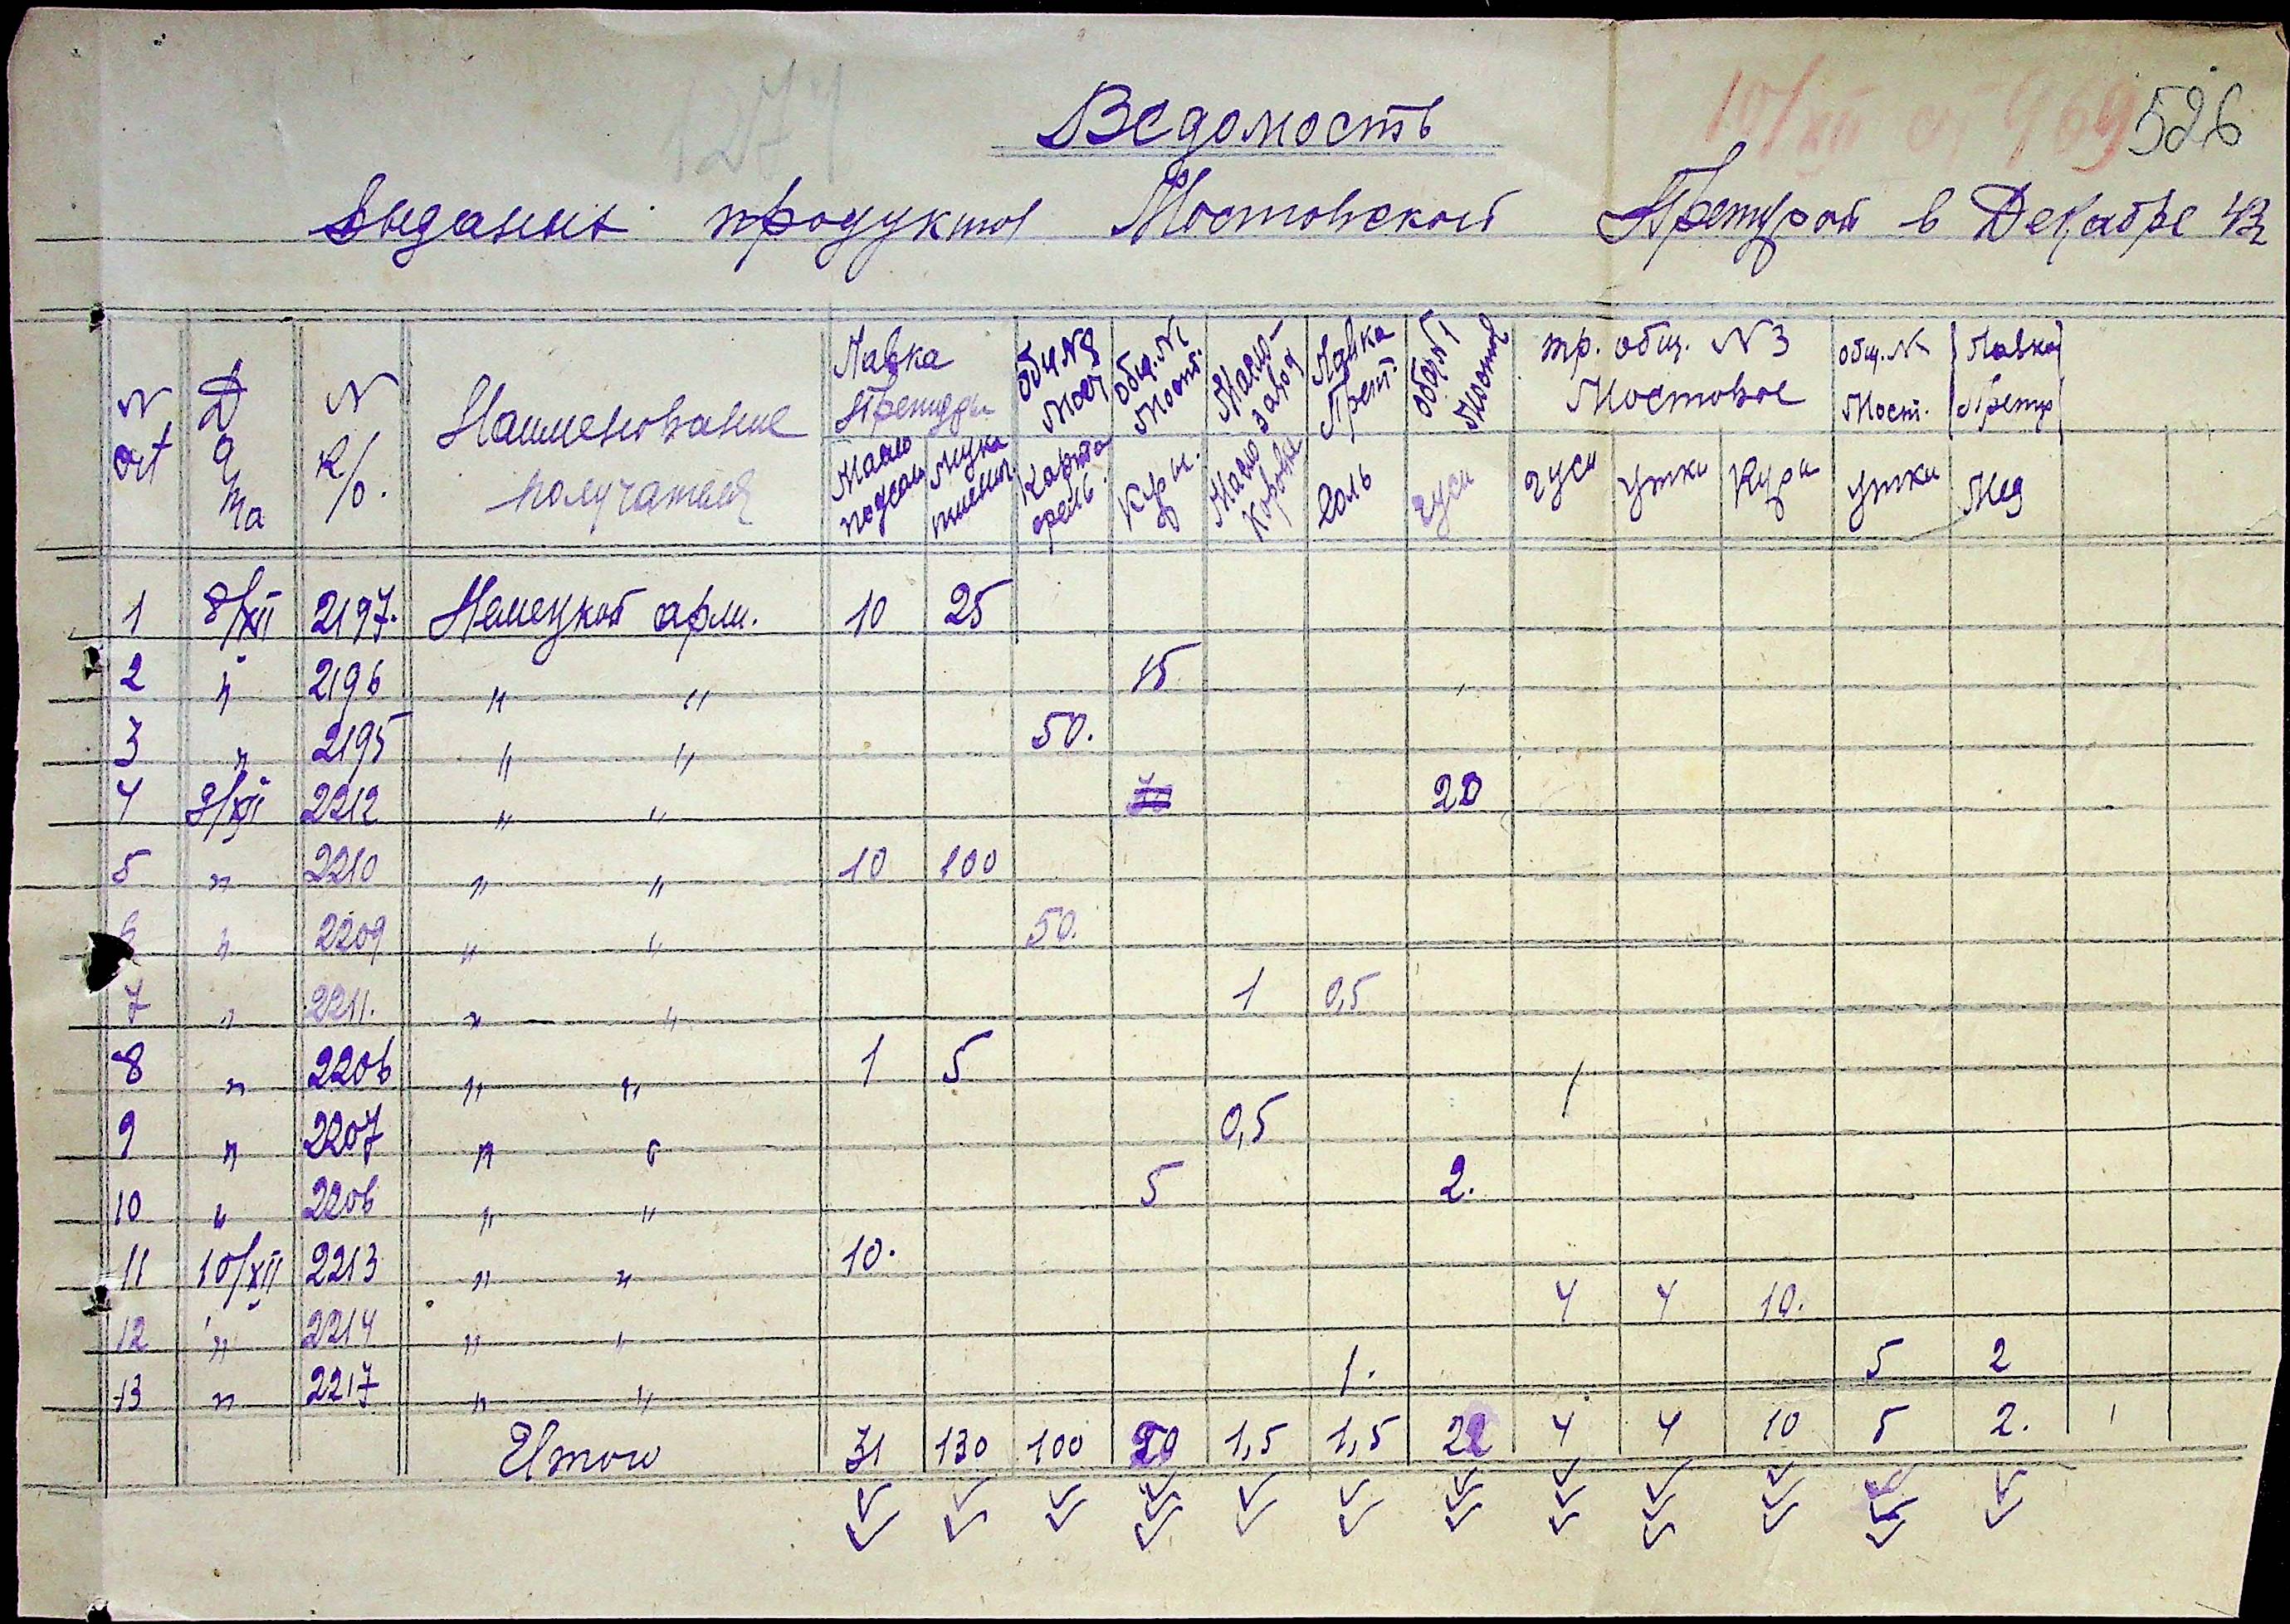 Ведомость
526
выданных продуктов Мостовской Претурой в Декабре 43 г
N
Дата
N
R/о.
Наименование
получателя
Лавка
Претуры
Масло подсол
Мука пшенич.
Общ N3 Мост
Картофель.
Общ. N1 Мост.
Куры.
Масло-завод
Масло коровье
Лавка Прет.
Соль
общ N1 Мостов
гуси
тр. общ. N 3
Мостовое
гуси
утки
Куры
общ. N
Мост.
утки
Лавка
Претур
Мед
1 8/XII 2197. Немецкой арм. 10 25
2 " 2196 " " 15
3 " 2195 " " 50.
4 9/XII 2212 " " 20
5 " 2210 " " 10 100
6 " 2209 " " 50.
7 " 2211. " " 1 0,5
8 " 2206 " " 1 5
9 " 2207 " " 0,5
10 " 2206 " " 5 2.
11 10/XII 2213 " " 10.
12 " 2214 " " 4 4 10.
13 " 2217 " " 1. 5 2
Итого 31 130 100 20 1,5 1,5 22 4 4 10 5 2.